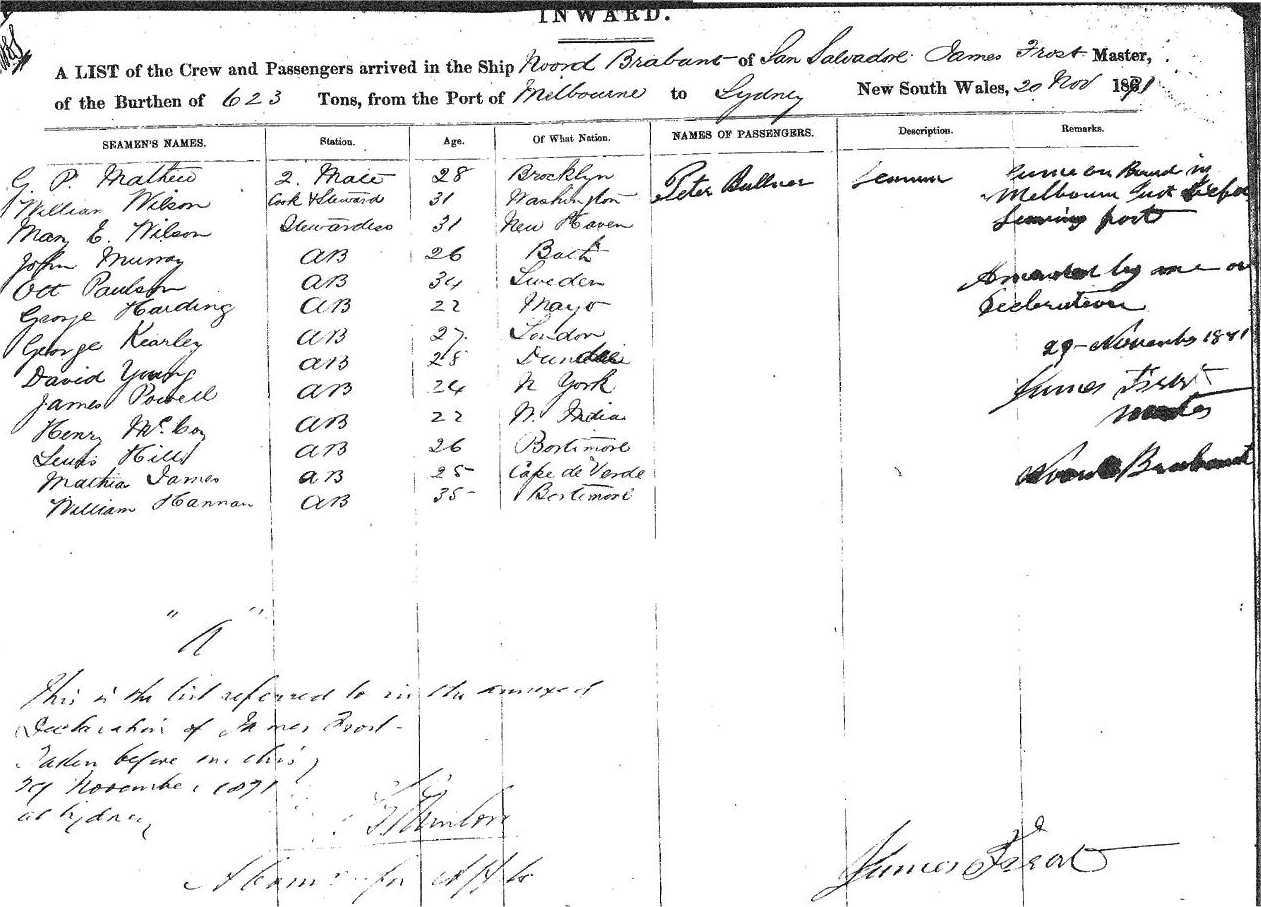 INWARD.
A LIST of the Crew and Passengers arrived in the Ship Noord Brabant of San Salvador James Frost Master,
of the Burthen of 623 Tons, from the Port of Melbourne to Sydney New South Wales, 20 Nov 1871
SEAMEN'S NAMES. Station. Age. Of What Nation. NAMES OF PASSENGERS. Description. Remarks.
G. P. Mathew 2. Mate 28 Brocklyn Peter Bullner Seaman on Board in
William Wilson Cook & Steward 31 Washington Melbourne just
Mary E. Wilson Stewardess 31 New Haven port
John Murray AB 26 Bath
Ott Paulson AB 34 Sweden Amended by me on
George Harding AB 22 Mayo Decleration
George Kearley AB 27 London 29 November 1871
David Young AB 28 Dundee
James Powell AB 24 N York James Frost
Henry McCoy AB 22 W. India
Lewis Hills AB 26 Bortimore
Mathia James AB 25 Cape de Verde Noord Brabant
William Hannan AB 35 Bortimore
"A"
This is the list referred to in the annexed
Declaration of James Frost
Taken before me this
29 November 1871
at Sydney
James Frost